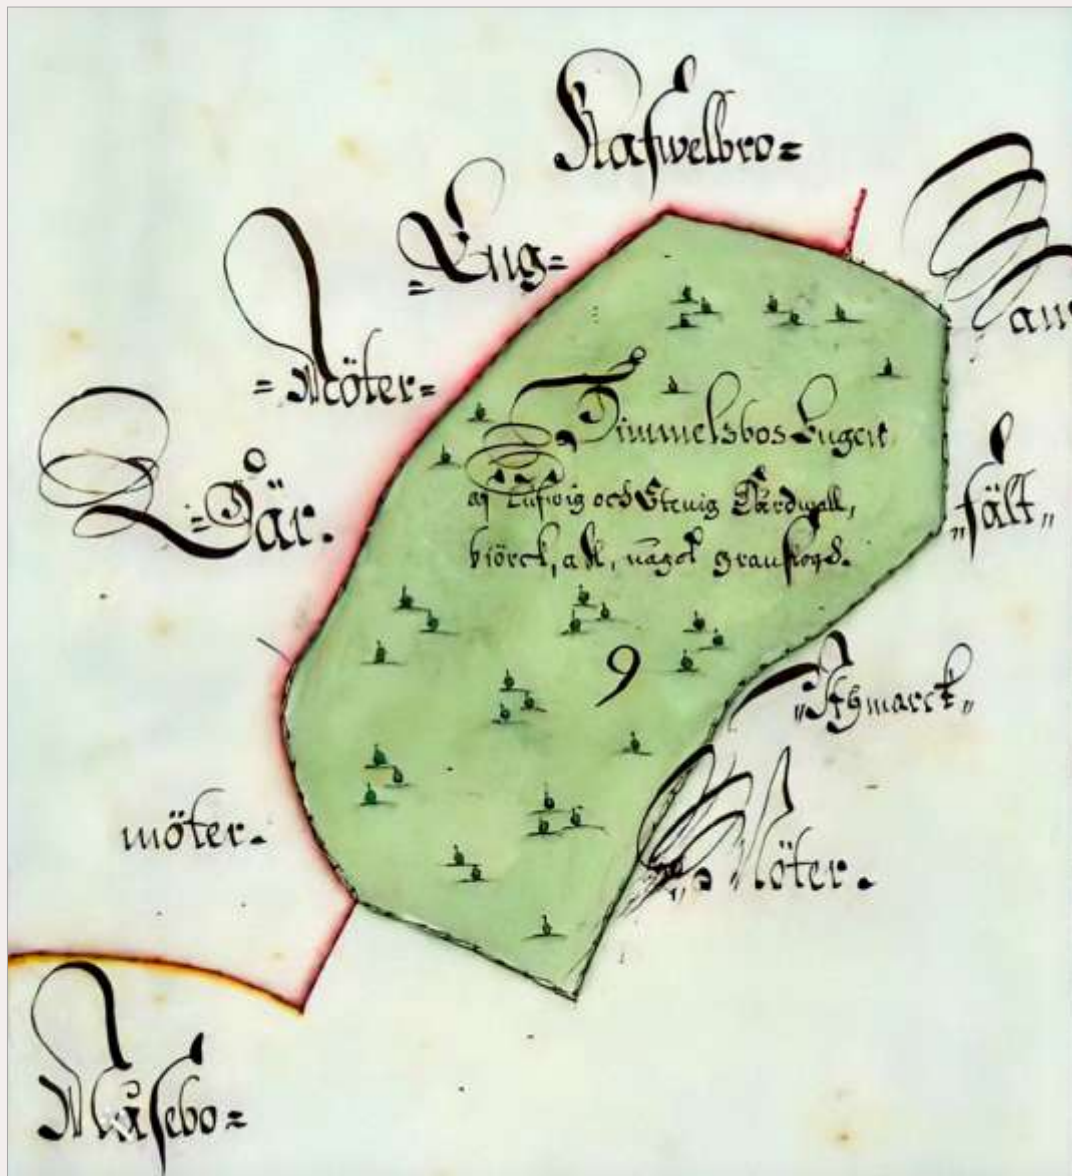 Rafwelbro=
=Eng=
=Möter=
=Där.
Dimmelsbos Engen
af Tufwig och Stenig Hårdwall,
biörck, ahl, något granskog.
9
fält„
„Utmarck„
Möter.
möter.
Måsebo=